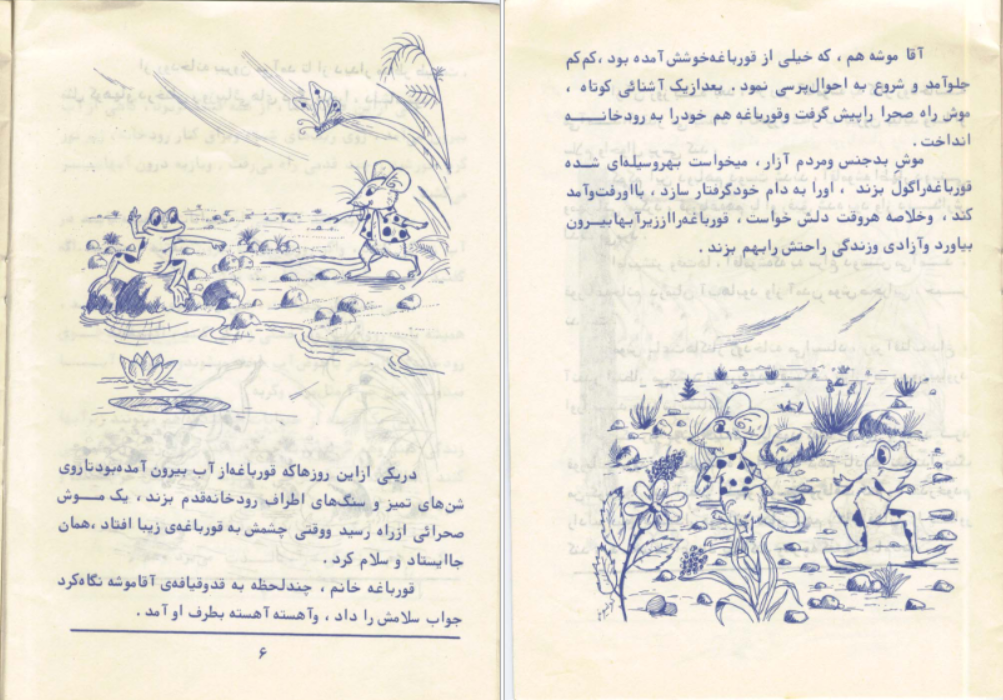 دریکی ازاین روزهاکه قورباغه‌از آب بیرون آمده‌بودتاروی
شن‌های تمیز و سنگ‌های اطراف رودخانه‌قدم بزند ، یک موش
صحرائی ازراه رسید ووقتی چشمش به قورباغه‌ی زیبا افتاد ،همان
جاایستاد و سلام کرد .
قورباغه خانم ، چندلحظه به قدوقیافه‌ی آقاموشه نگاه‌کرد
جواب سلامش را داد ، وآهسته آهسته بطرف او آمد .
۶
آقا موشه هم ، که خیلی از قورباغه‌خوشش‌آمده بود ،کم‌کم
جلوآمد و شروع به احوال‌پرسی نمود . بعدازیک آشنائی کوتاه ،
موش راه صحرا راپیش گرفت وقورباغه هم خودرا به رودخانه
انداخت .
موش بدجنس ومردم آزار ، میخواست بهروسیله‌ای شده
قورباغه‌راگول بزند ، اورا به دام خودگرفتار سازد ، بااورفت‌وآمد
کند ، وخلاصه هروقت دلش خواست ، قورباغه‌رااززیرآبهابیرون
بیاورد وآزادی وزندگی راحتش رابهم بزند .